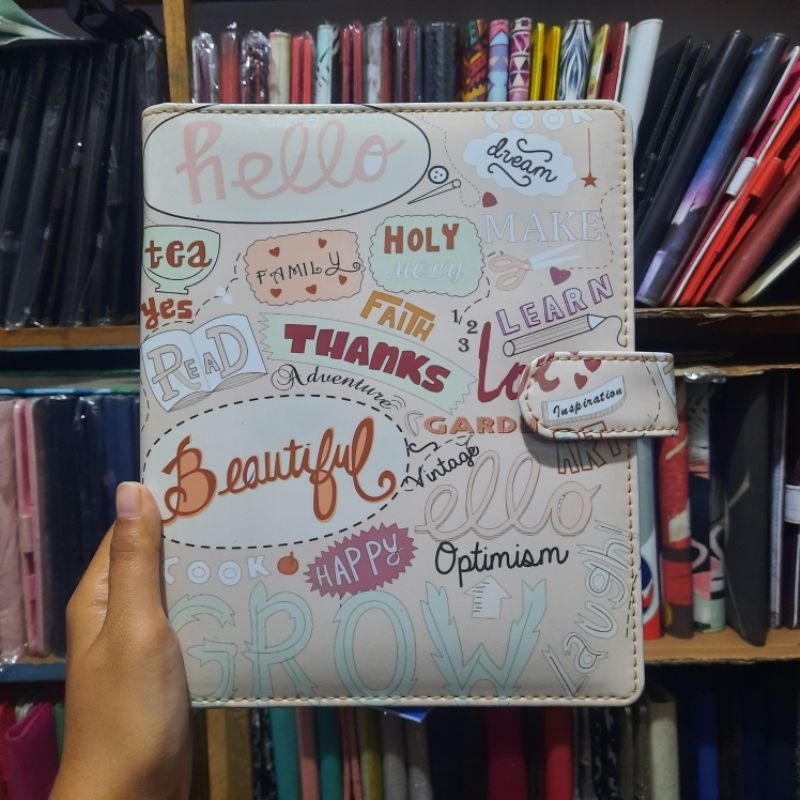 hello
COOK
dream
tea
FAMILY
HOLY
MOLY
MAKE
yes
FAITH
1/2
3
LEARN
READ
THANKS
Adventure
Inspiration
Beautiful
Vintage
ART
ello
COOK
HAPPY
Optimism
laugh!
GROW